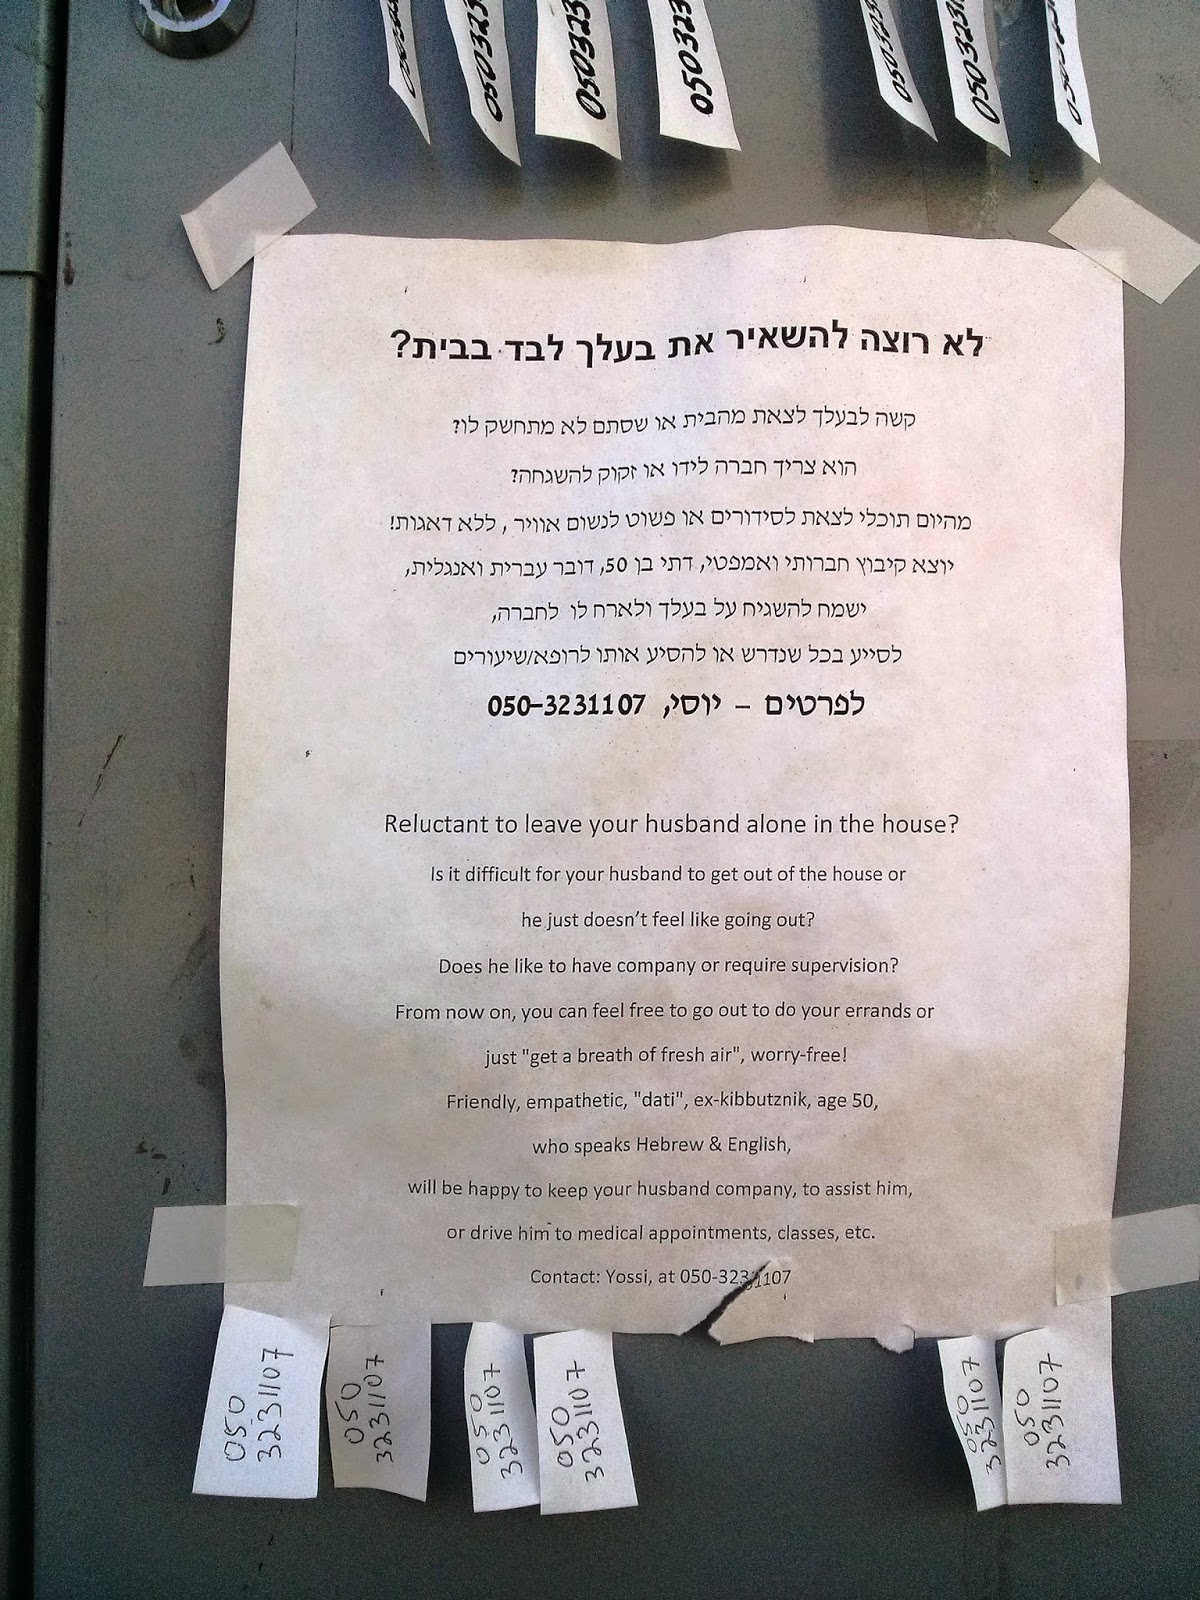 050323
050323
050323
050323
050323
לא רוצה להשאיר את בעלך לבד בבית?
קשה לבעלך לצאת מהבית או שסתם לא מתחשק לו?
הוא צריך חברה לידו או זקוק להשגחה?
מהיום תוכלי לצאת לסידורים או פשוט לנשום אוויר, ללא דאגות!
יוצא קיבוץ חברותי ואמפטי, דתי בן 50, דובר עברית ואנגלית,
ישמח להשגיח על בעלך ולארח לו לחברה,
לסייע בכל שנדרש או להסיע אותו לרופא/שיעורים
לפרטים – יוסי, 050-3231107
Reluctant to leave your husband alone in the house?
Is it difficult for your husband to get out of the house or
he just doesn't feel like going out?
Does he like to have company or require supervision?
From now on, you can feel free to go out to do your errands or
just "get a breath of fresh air", worry-free!
Friendly, empathetic, "dati", ex-kibbutznik, age 50,
who speaks Hebrew & English,
will be happy to keep your husband company, to assist him,
or drive him to medical appointments, classes, etc.
Contact: Yossi, at 050-3231107
050
3231107
050
3231107
050
3231107
050
3231107
050
3231107
050
3231107